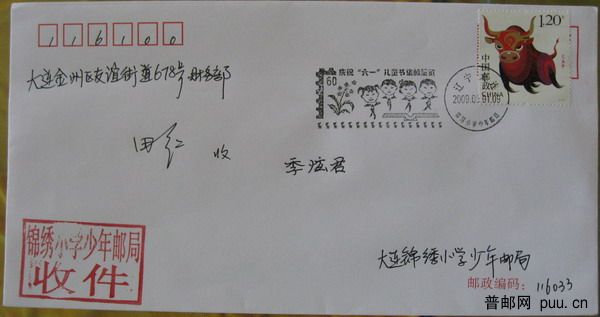 116100
1.20元
中国邮政
CHINA
大连金州区友谊街道678号财务部
庆祝“六一”儿童节集邮活动
60
2009.06.01.09
田红 收
季泫君
锦绣小学少年邮局
收件
大连锦绣小学少年邮局
邮政编码：116033
普邮网 puu.cn